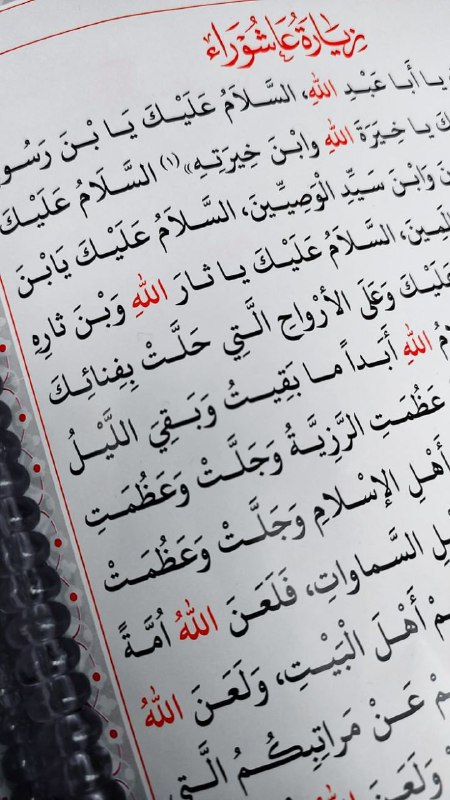 زِيَارَةُ عَاشُورَاء
يا أَبا عَبْدِ اللهِ، السَّلاَمُ عَلَيْكَ يَا بْنَ رَسُو
يا خِيَرَةَ اللهِ وابْنَ خِيَرَتِهِ»(١) السَّلاَمُ عَلَيْكَ
وَابْنَ سَيِّدِ الْوَصِيِّينَ، السَّلاَمُ عَلَيْكَ يَابْنَ
السَّلاَمُ عَلَيْكَ يا ثارَ اللهِ وَبْنَ ثارِهِ
عَلَيْكَ وَعَلَى الأرْواحِ الَّتِي حَلَّتْ بِفِنائِكَ
اللهِ أَبَداً ما بَقِيتُ وَبَقِيَ اللَّيْلُ
عَظُمَتِ الرَّزِيَّةُ وَجَلَّتْ وَعَظُمَتِ
أَهْلِ الإسْلامِ وَجَلَّتْ وَعَظُمَتْ
السَّماواتِ، فَلَعَنَ اللهُ أُمَّةً
أَهْلَ الْبَيْتِ، وَلَعَنَ اللهُ
عَنْ مَراتِبِكُمُ الَّتِي
وَلَعَنَ